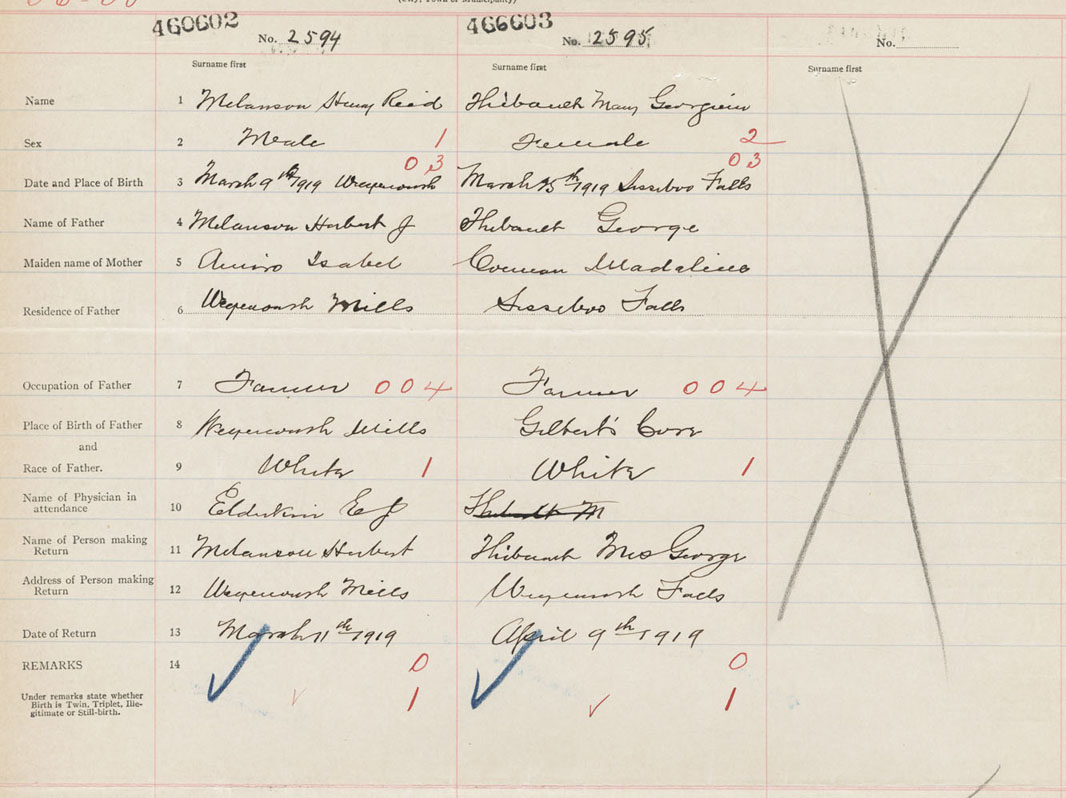 (City, Town or Municipality)
460602 466603
No. 2594 No. 2595 No.
Surname first Surname first Surname first
Name 1 Melanson Henry Reid Thibault Mary
Sex 2 Male 1 Female 2
03 03
Date and Place of Birth 3 March 9th 1919 March 25th 1919 Sissiboo Falls
Name of Father 4 Melanson Herbert J Thibault George
Maiden name of Mother 5 Amiro Isabel
Residence of Father 6 Mills Sissiboo Falls
Occupation of Father 7 Farmer 004 Farmer 004
Place of Birth of Father 8 Mills Gilbert's Cove
and
Race of Father. 9 White 1 White 1
Name of Physician in
attendance 10 Elderkin E J
Name of Person making
Return 11 Melanson Herbert Thibault Mrs George
Address of Person making
Return 12 Mills Falls
Date of Return 13 March 11th 1919 April 9th 1919
REMARKS 14 0 0
Under remarks state whether
Birth is Twin, Triplet, Ille-
gitimate or Still-birth. 1 1